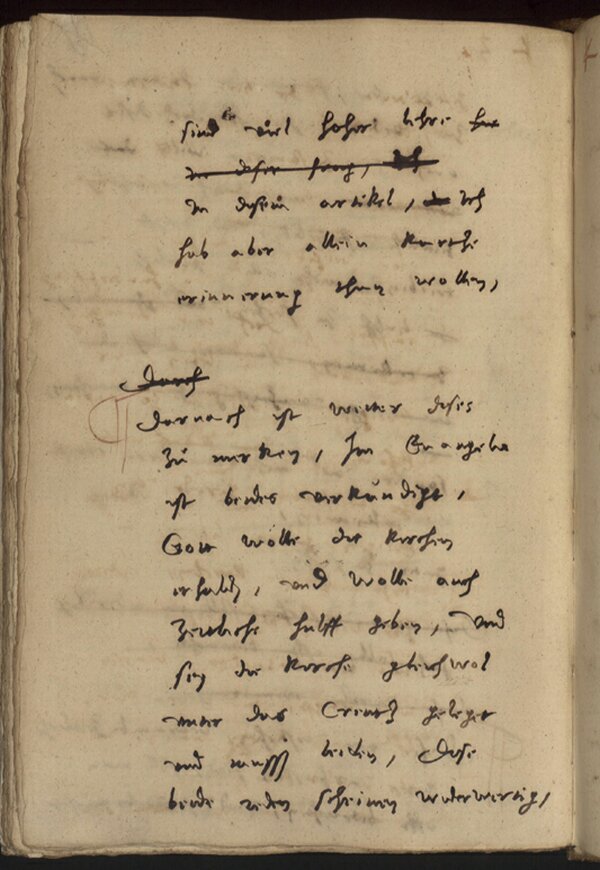 sind viel hoher lehre hie
in diser frag, Ich
in disem artikel, Ich
hab aber allein kurtze
erinnerung thun wollen,
Durch
Darnach ist weiter dises
zu merken, Im Euangelio
ist beides verkündigt,
Gott wölle die kirchen
erhalten, und wölle auch
zeitliche hülff geben, Und
sey die kirche gleichwol
unter das Creutz geleget
und muss leiden, Dise
beide reden scheinen widerwertig,